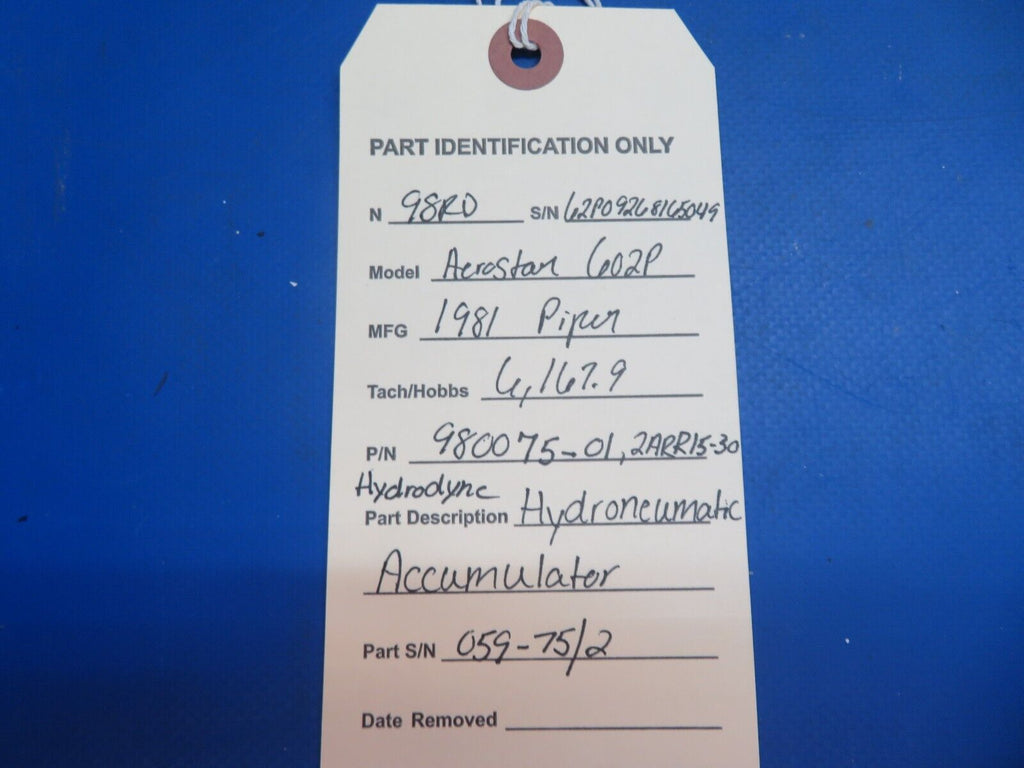 PART IDENTIFICATION ONLY
N 98RD S/N 62P09268165049
Model Aerostar 602P
MFG 1981 Piper
Tach/Hobbs 6,167.9
P/N 980075-01, 2ARR15-30
Hydrodyne
Part Description Hydroneumatic
Accumulator
Part S/N 059-75/2
Date Removed